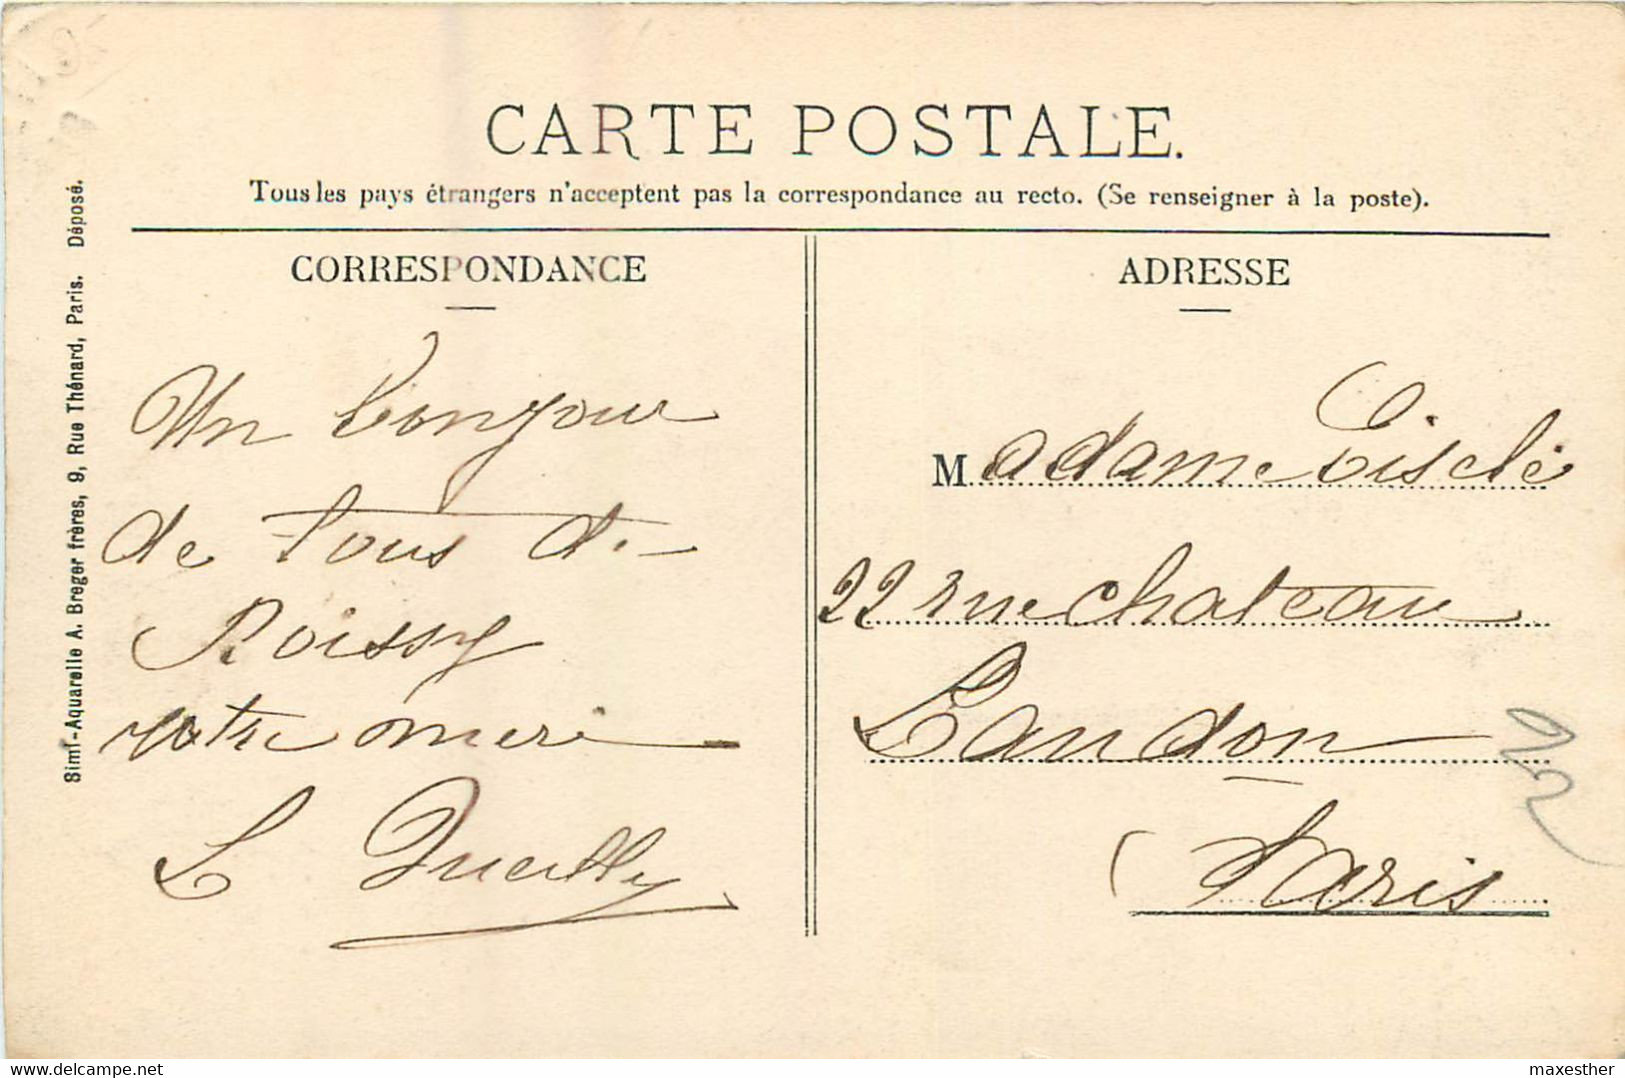 CARTE POSTALE.
Tous les pays étrangers n'acceptent pas la correspondance au recto. (Se renseigner à la poste).
Simi-Aquarelle A. Breger frères, 9, Rue Thénard, Paris. Déposé.
CORRESPONDANCE
Un bonjour
de tous de
Roissy
votre mere
L Queilly
ADRESSE
Madame
22 rue chateau
Landon
Paris
www.delcampe.net
maxesther